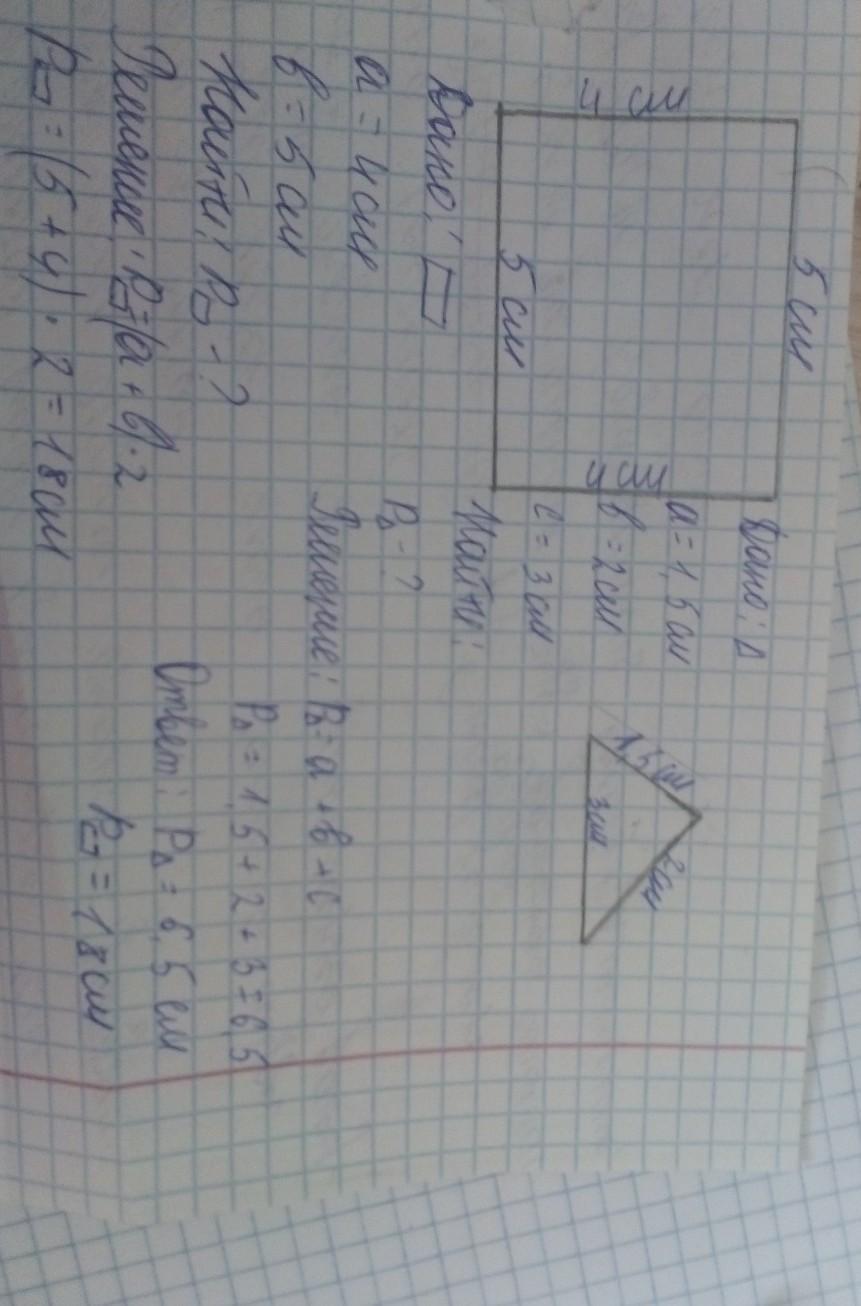 5 см
4 см
4 см
5 см
Дано: ▭
a = 4 см
b = 5 см
Найти: P▭ - ?
Решение: P▭=(a + b)·2
P▭ = (5 + 4) · 2 = 18 см
Дано: Δ
a = 1,5 см
b = 2 см
c = 3 см
Найти:
PΔ - ?
1,5 см
2 см
3 см
Решение: PΔ = a + b + c
PΔ = 1,5 + 2 + 3 = 6,5
Ответ: PΔ = 6,5 см
P▭ = 18 см